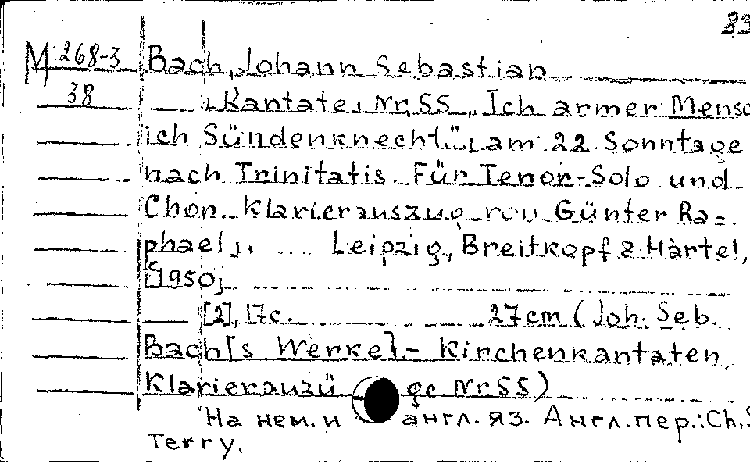 M 268-3 Bach, Johann Sebastian
38 Kantate, Nr.55 „Ich armer Mensc
ich Sündenknecht", am 22 Sonntage
nach Trinitatis. Für Tenor-Solo und
Chor. Klavierauszug von Günter Ra=
phael. Leipzig, Breitkopf & Härtel,
[1950]
[2], 17c. 27cm (Joh. Seb.
Bach[s Werke] - Kirchenkantaten
Klavierauszü ge Nr55)
На нем. и англ. яз. Англ. пер.: Ch.
Terry.